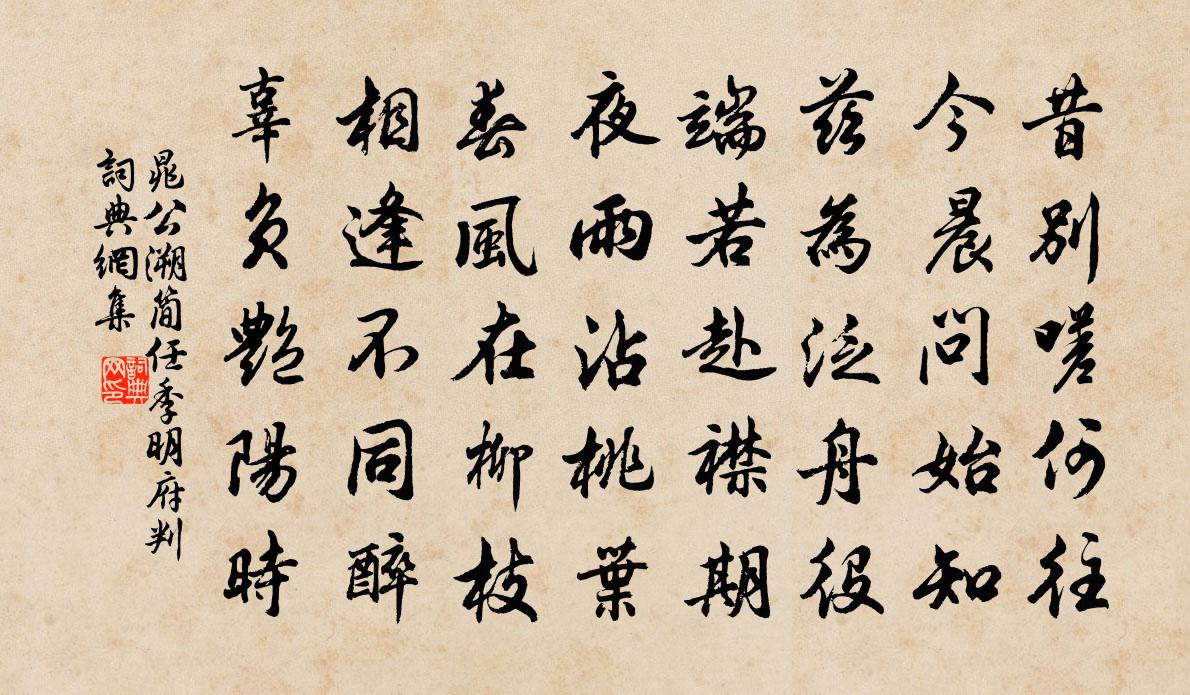 昔别嗟何往
今晨问始知
兹為泛舟役
端若赴襟期
夜雨沾桃葉
春風在柳枝
相逢不同醉
辜负艷陽時
晁公溯简任季明府判
詞典網集
詞典網印